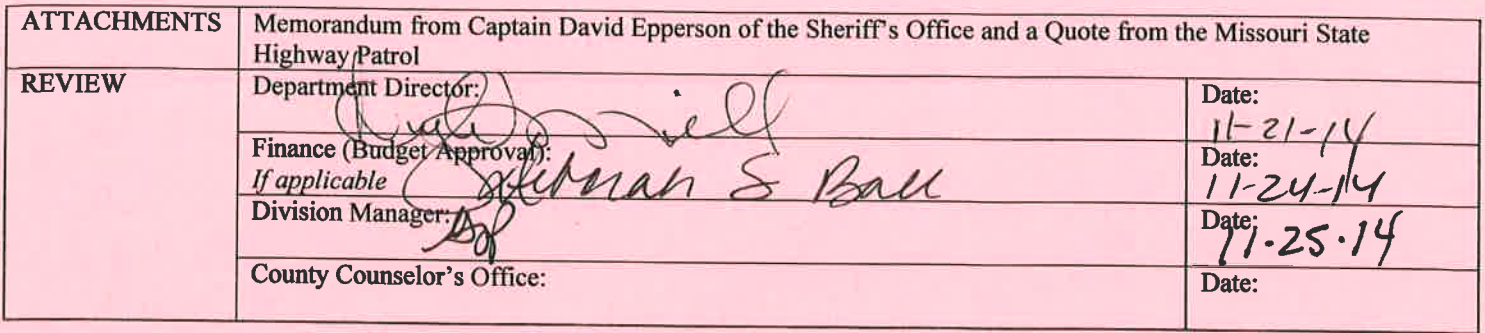 ATTACHMENTS
Memorandum from Captain David Epperson of the Sheriff's Office and a Quote from the Missouri State
Highway Patrol
REVIEW
Department Director:
Date:
11-21-14
Finance (Budget Approval):
If applicable
Deborah S Ball
Date:
11-24-14
Division Manager:
Date:
11.25.14
County Counselor's Office:
Date: